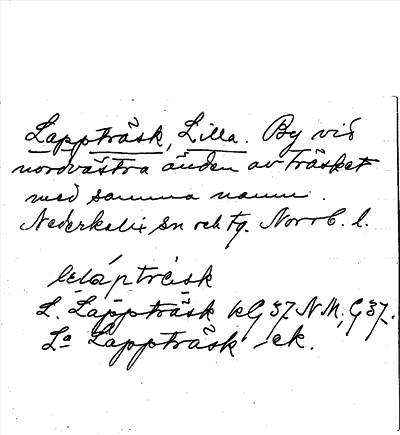 Lappträsk, Lilla. By vid
nordvästra änden av träsket
med samma namn.
Nederkalix sn och tg. Norrb. l.
L. Lappträsk kG 37 NM, G 37.
La Lappträsk ek.